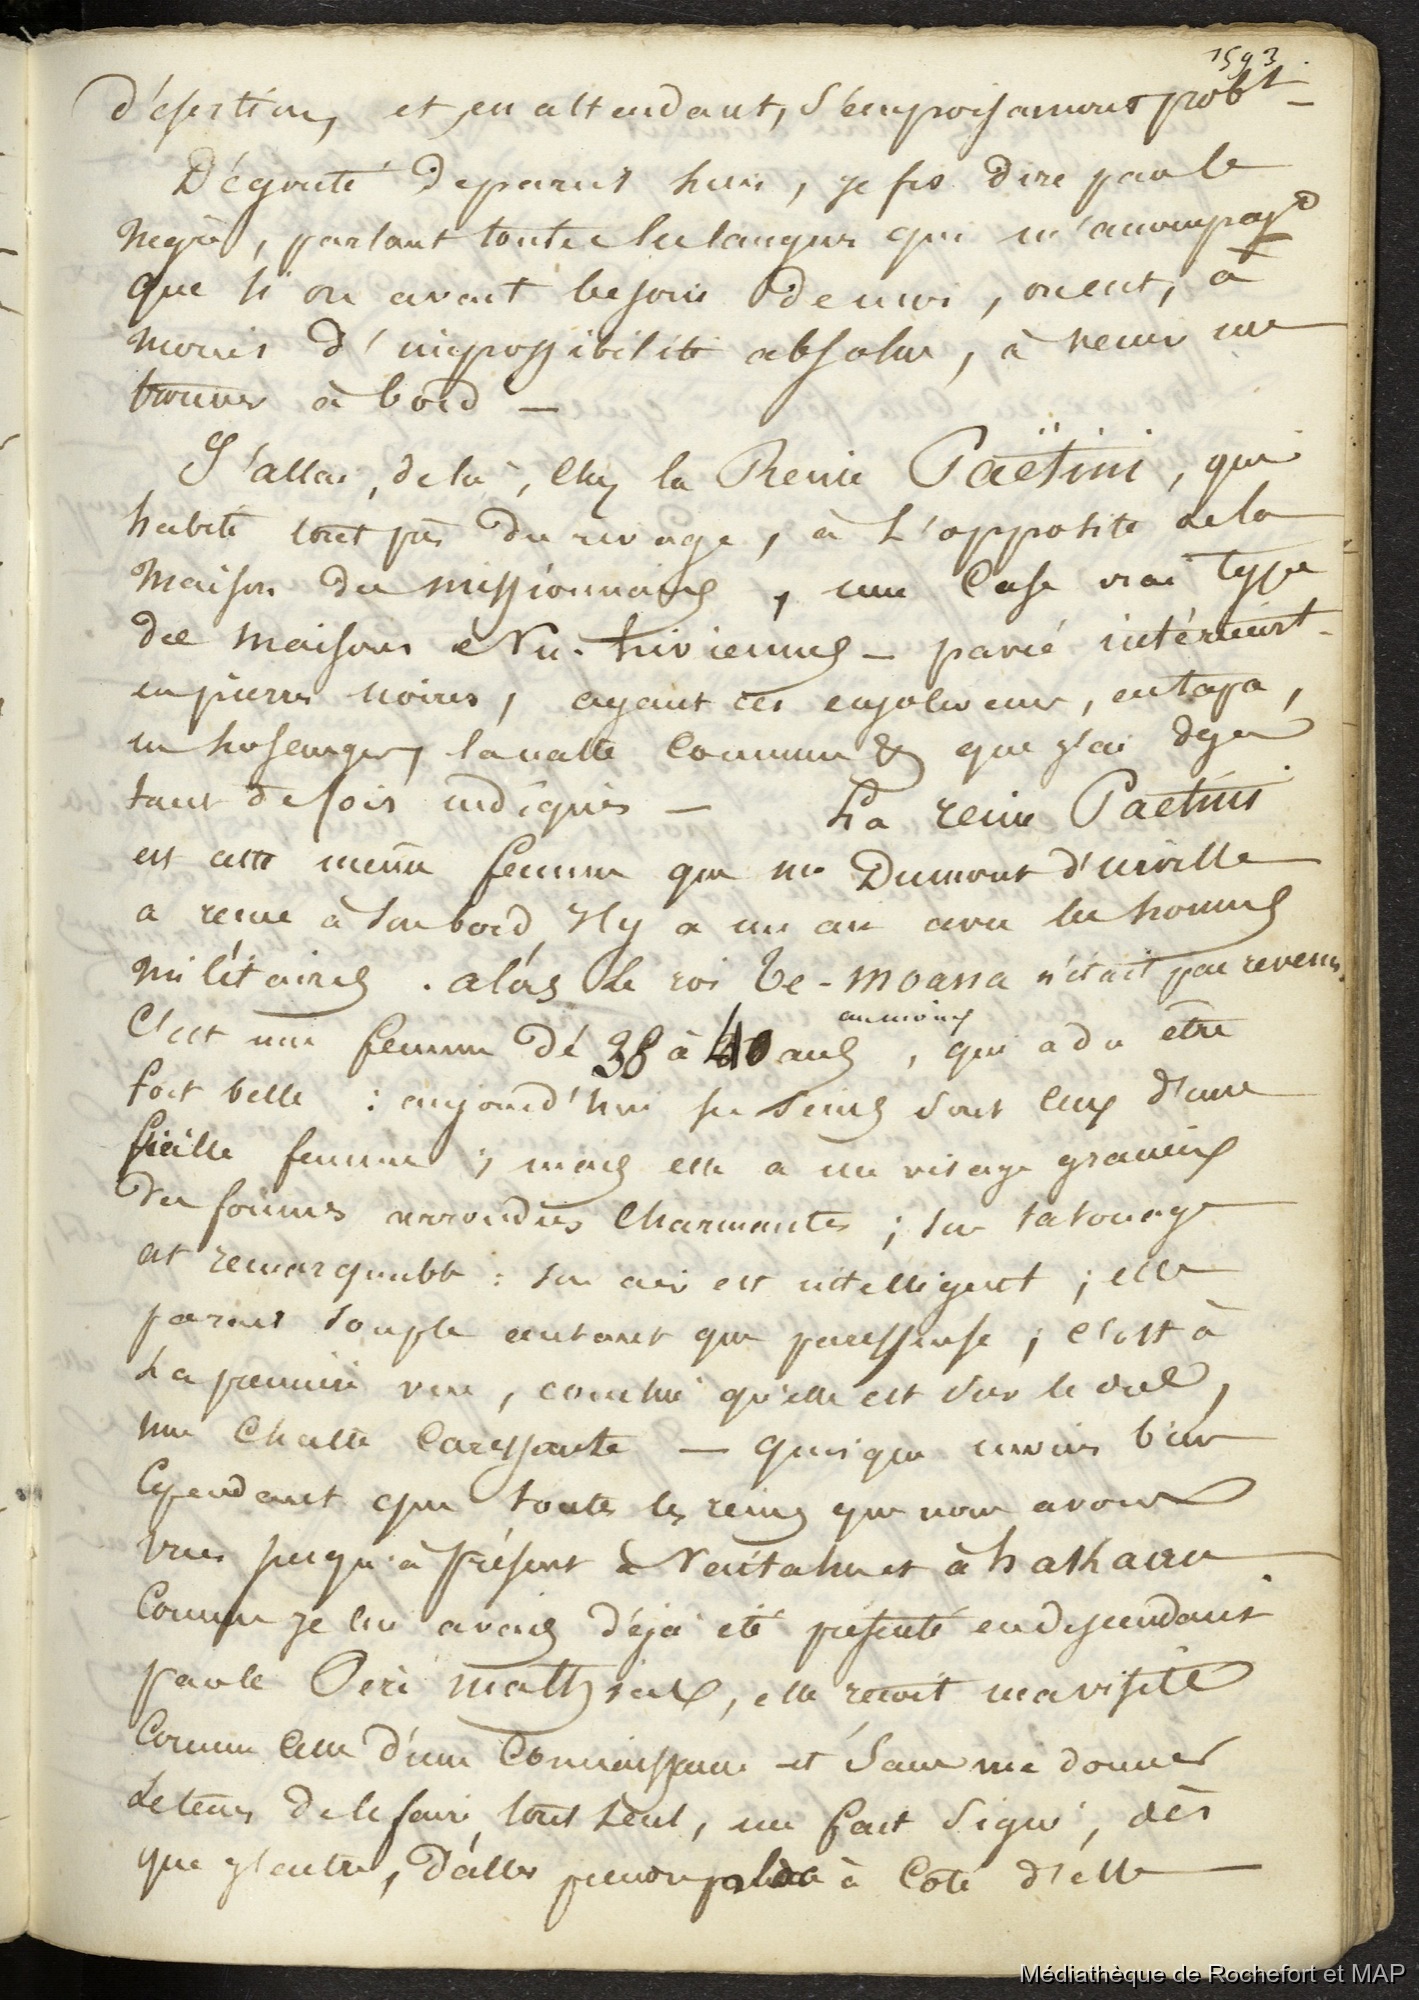 1593
d'esertion, et en attendant, s'empoisonnent probt_
Dégouté deparens lieux, je fis dire par le
negre, parlant toutes les langues qui m'accompagt
que si on avait besoin de moi, on eut, à
moins d'impossibilité absolue, à venir me
trouver à bord —
J'allai, delà, chez la Reine Paëtini, qui
habite tout près du rivage, à l'opposite de la
maison des missionnaires, une case vrai type
des maisons Nu-hiviennes — pavée intérieurt_
en pierres noires, ayant ses enjoliveurs, en tapa,
la natte commune &c que j'ai deja
tant de fois indiqués — La reine Paetini
est cette même femme que Mr Dumont d'urville
a reçue à son bord Il y a un an avec les honneurs
militaires. alors le roi Te-moana n'était pas revenu.
au moins
C'est une femme de 38 à 40 ans, qui a du être
fort belle : aujourd'hui ses seins sont ceux d'une
vieille femme ; mais elle a un visage gracieux
des formes arrondies charmantes ; son tatouage
est remarquable : son air est intelligent ; elle
parait souple autant que paresseuse ; c'est à
la première vue, couchée qu'elle est sur le dos,
une chatte caressante — quoique moins bien
cependant que toutes les reines que nous avons
vues jusqu'à présent à Vaitahu et à hathaau
Comme je lui avais déjà été présenté en descendant
par le Père mathias, elle reçoit ma visite
comme celle d'une connaissance et sans me donner
le tems de le faire tout seul, me fait signe, dès
que j'entre, d'aller prendre place à côté d'elle —
Médiathèque de Rochefort et MAP